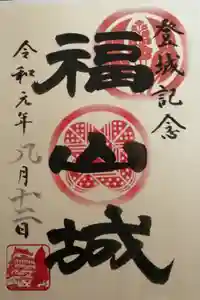 登城記念
福山城
令和元年九月十二日